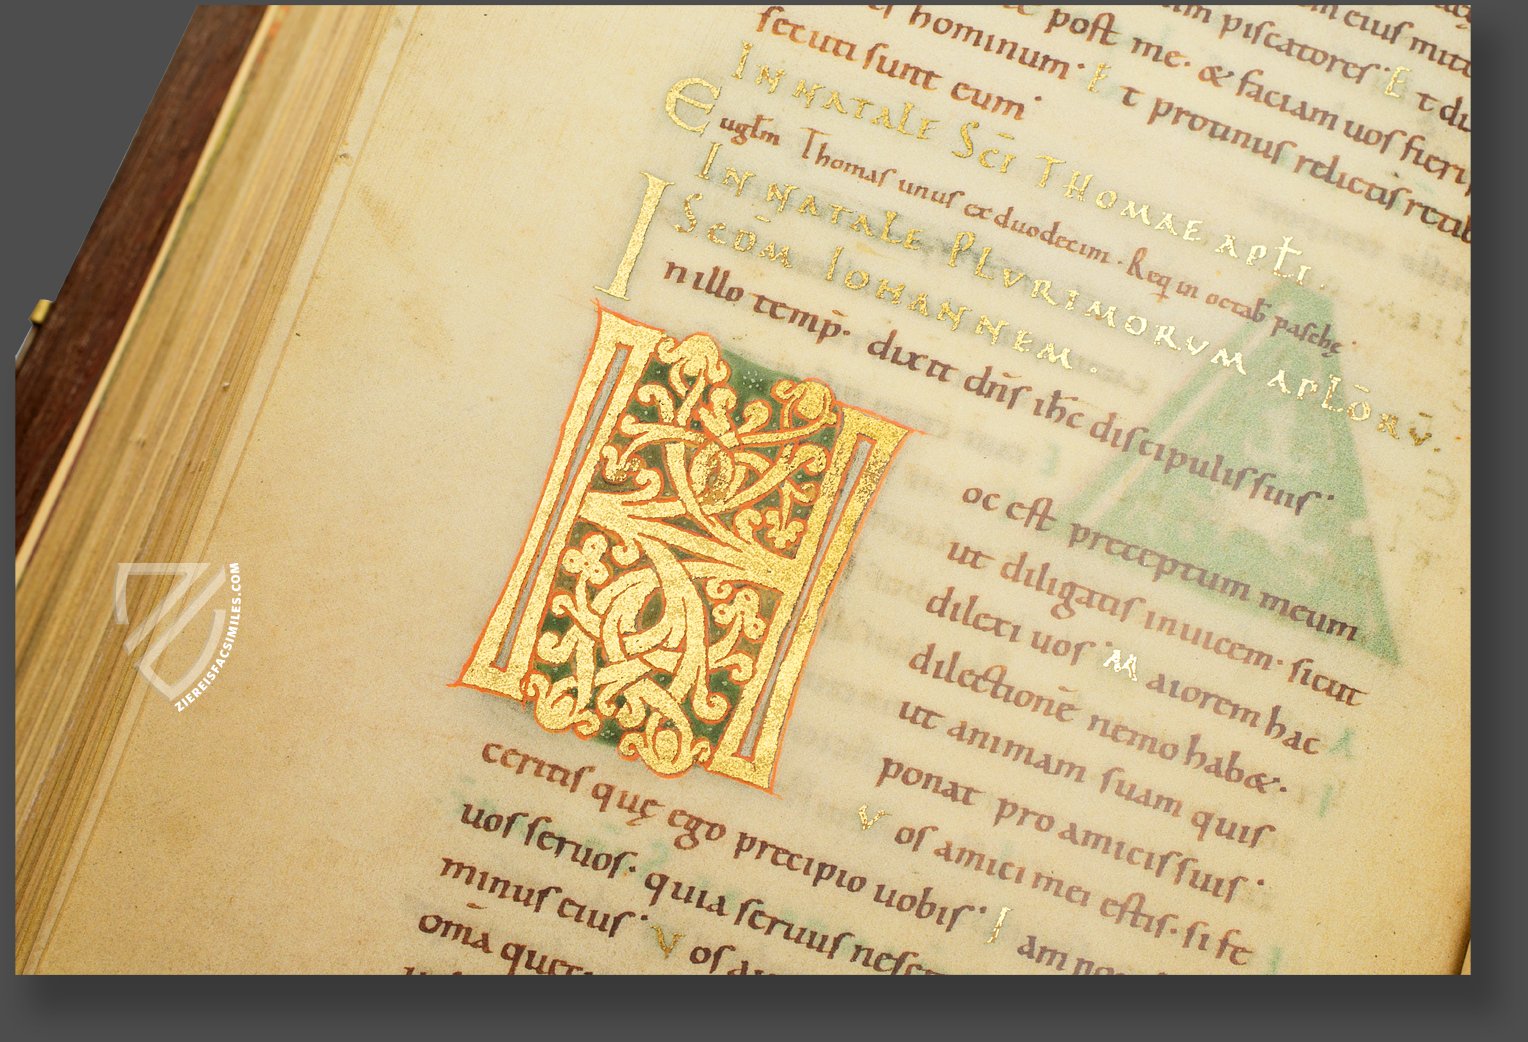 em eius mitt
um piscatores · Et du
post me · & faciam uos fieri
hominum · Et protinus relictis retib
secuti sunt eum ·
IN NATALE SC̄I THOMAE APŁI.
Eugł̄m Thomas unus ex duodecim · Req in octab̄ paschę
IN NATALE PLVRIMORVM APŁŌRV̄.
SCDM̄ IOHANNEM.
In illo temp̄· dixit dn̄s ih̄c discipulis suis ·
Hoc est preceptum meum
ut diligatis inuicem · sicut
dilexi uos · Maiorem hac
dilectionē nemo hab&·
ut animam suam quis
ponat pro amicis suis ·
Vos amici mei estis· si fe
ceritis quę ego precipio uobis · Iam no
uos seruos· quia seruus nesc
minus eius · Vos au
om̄a quec
ZIEREISFACSIMILES.COM